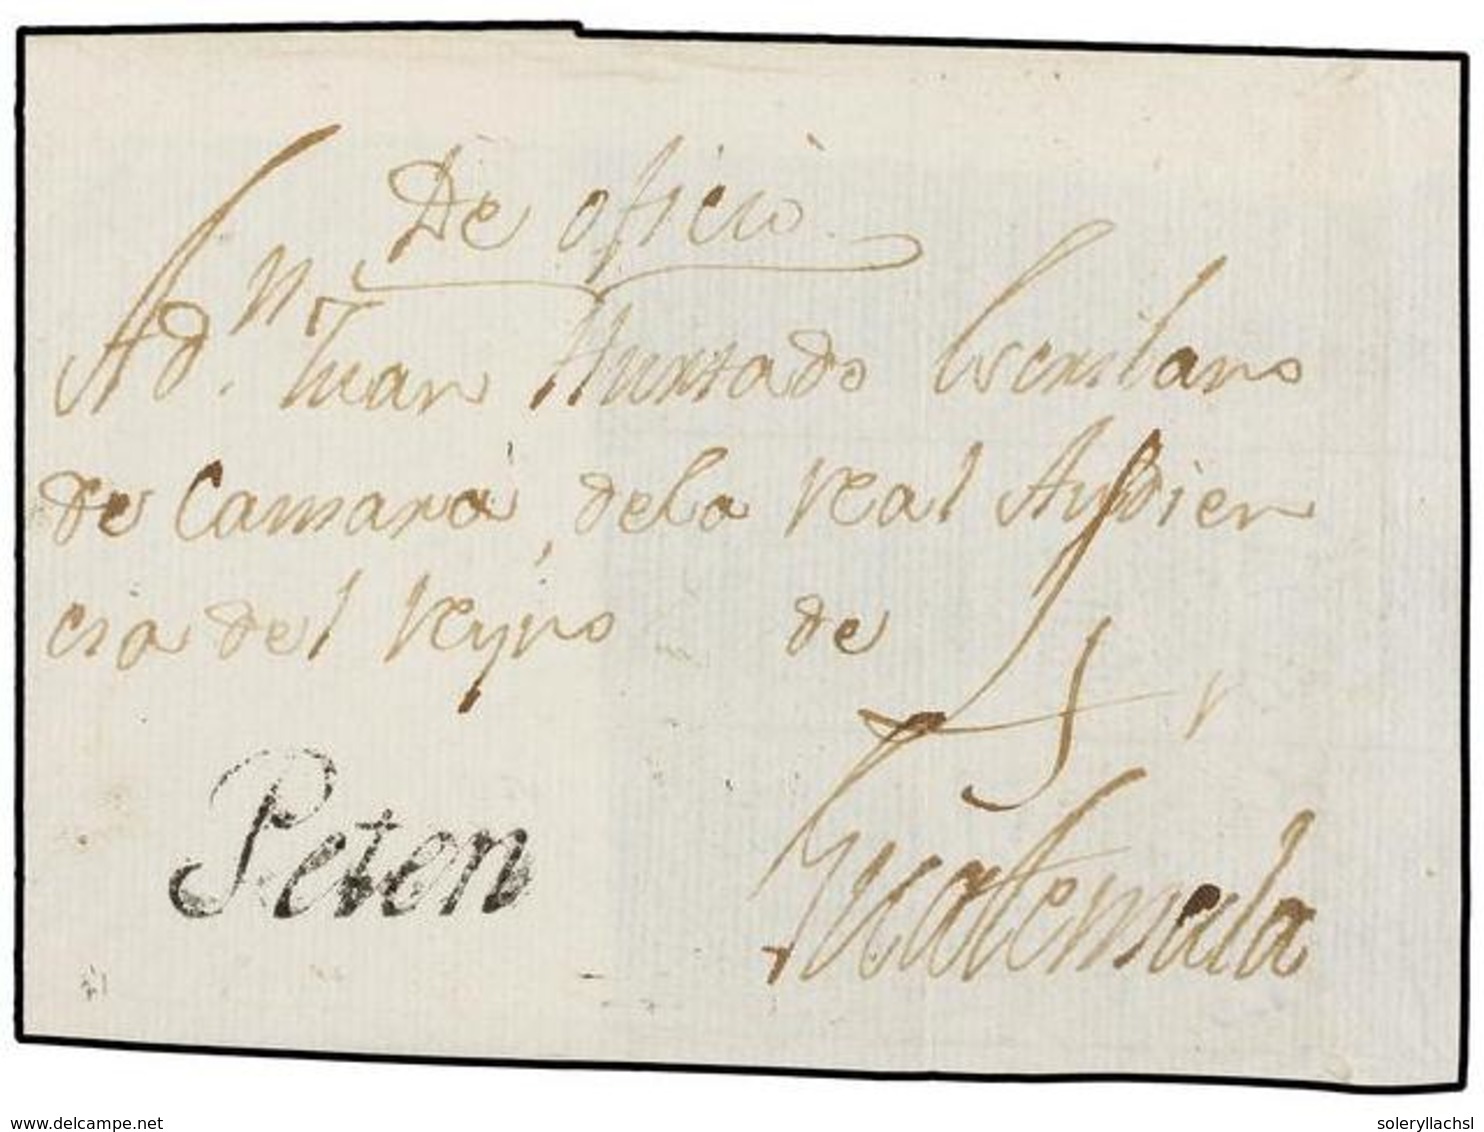 De oficio
A d.n Juan Hurtado Escribano
de Camara, de la real Audien
cia del reyno de
Guatemala
Peten
delcampe.net
soleryllachsl